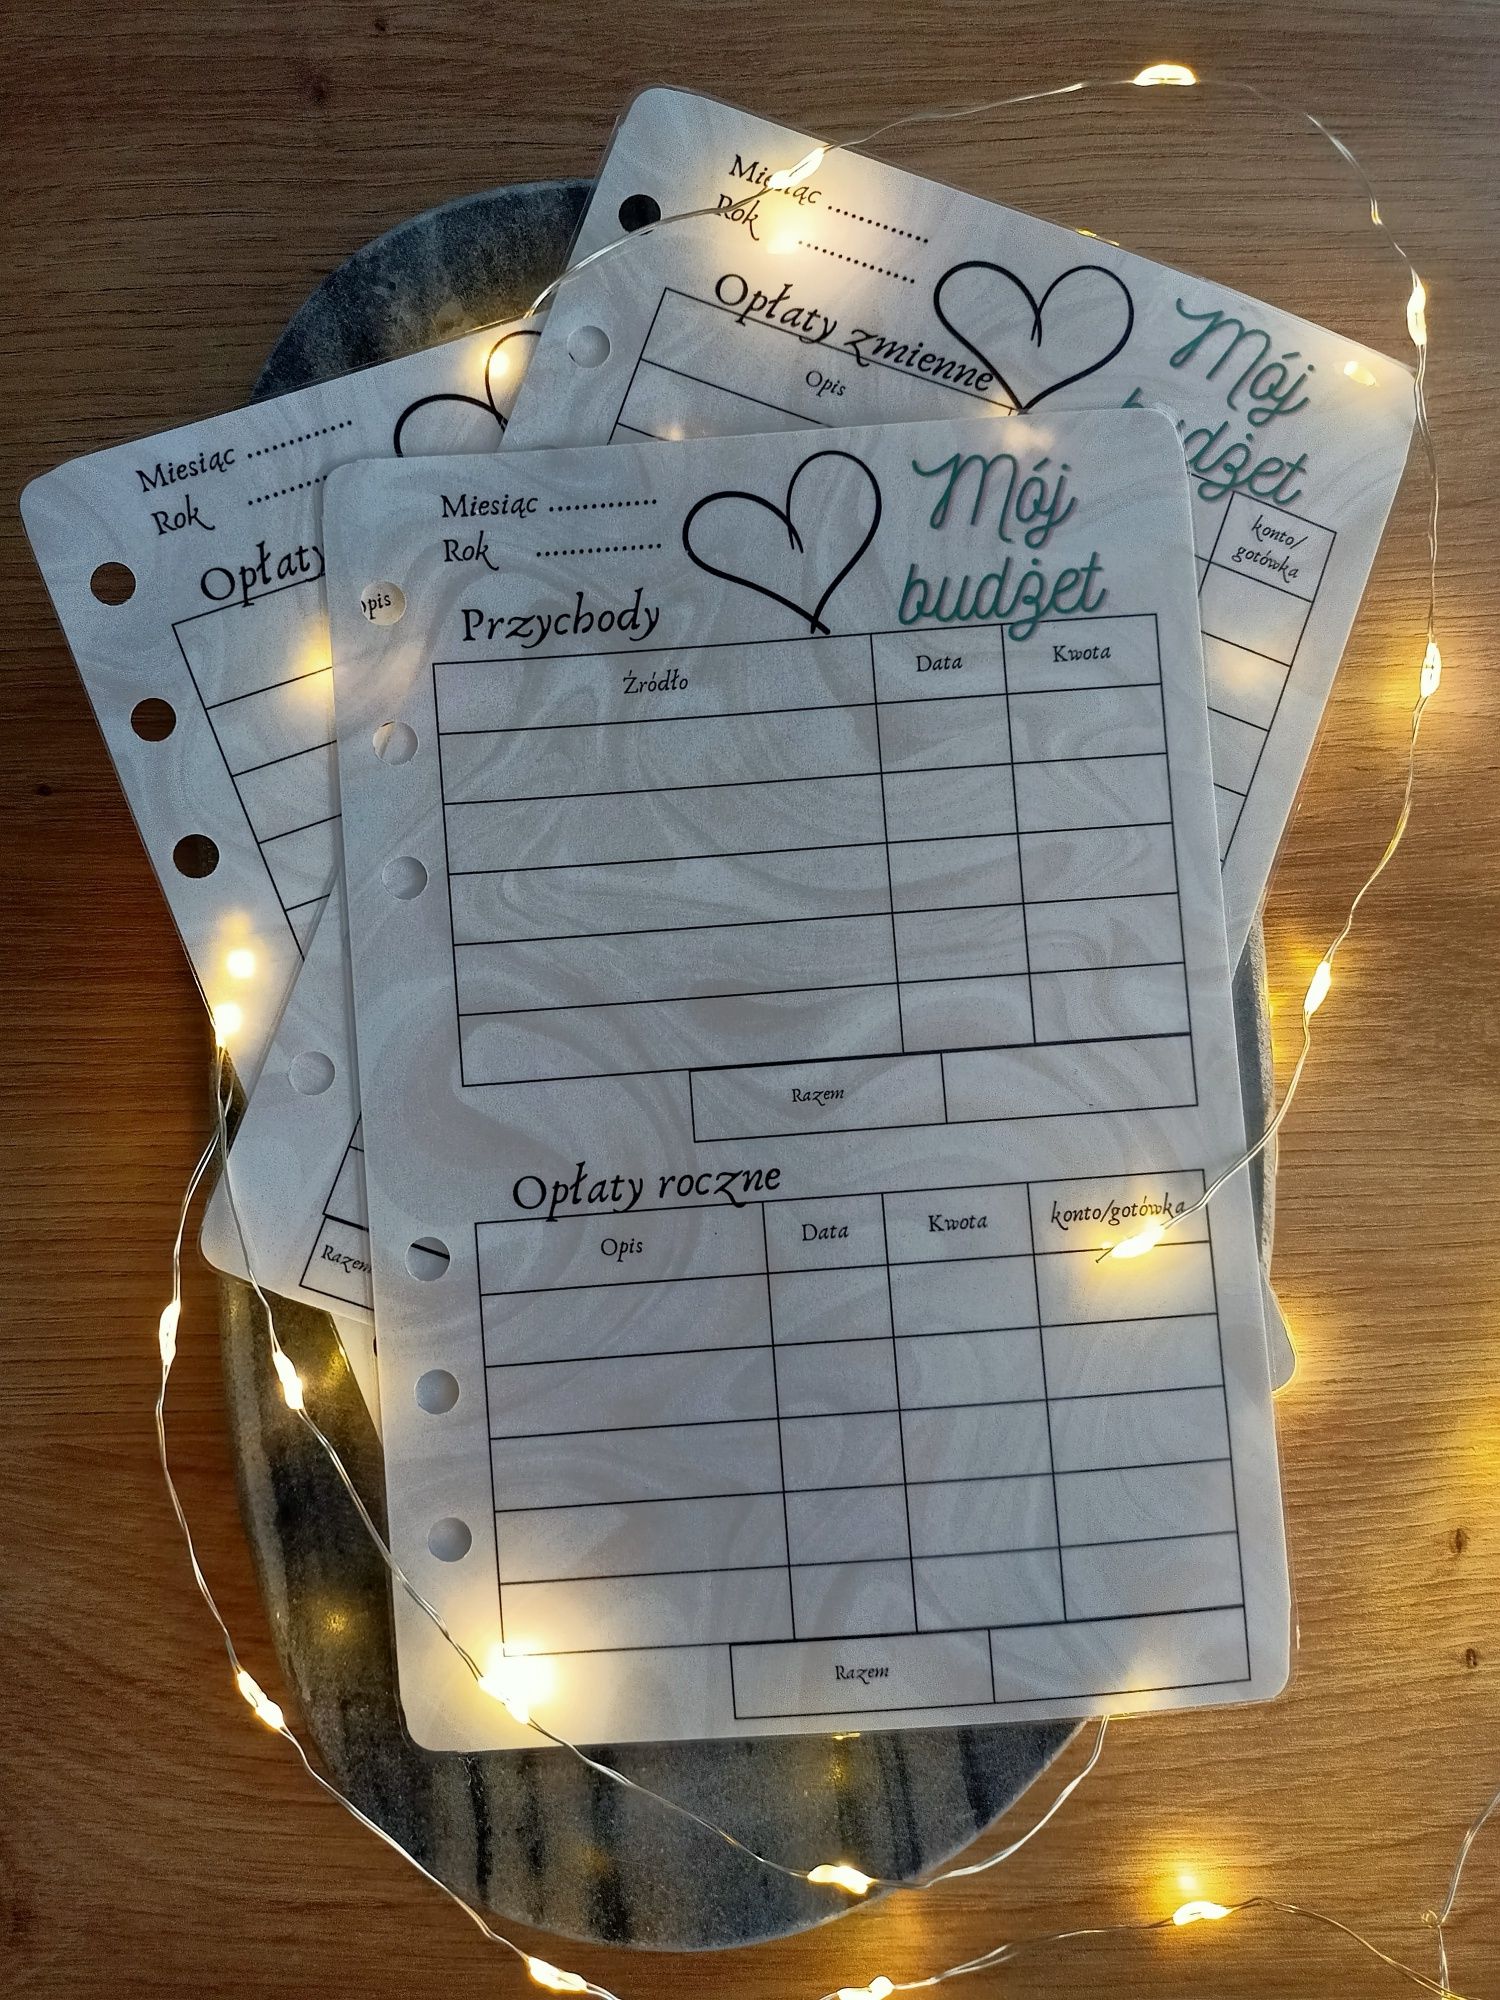 Miesiąc ...............
Rok ................
Opłaty zmienne
Mój
budżet
Opis
konto/
gotówka
Miesiąc ...............
Rok
Opłaty
opis
Razem
Miesiąc ...............
Rok ................
Mój
budżet
Przychody
Źródło Data Kwota
Razem
Opłaty roczne
Opis Data Kwota konto/gotówka
Razem